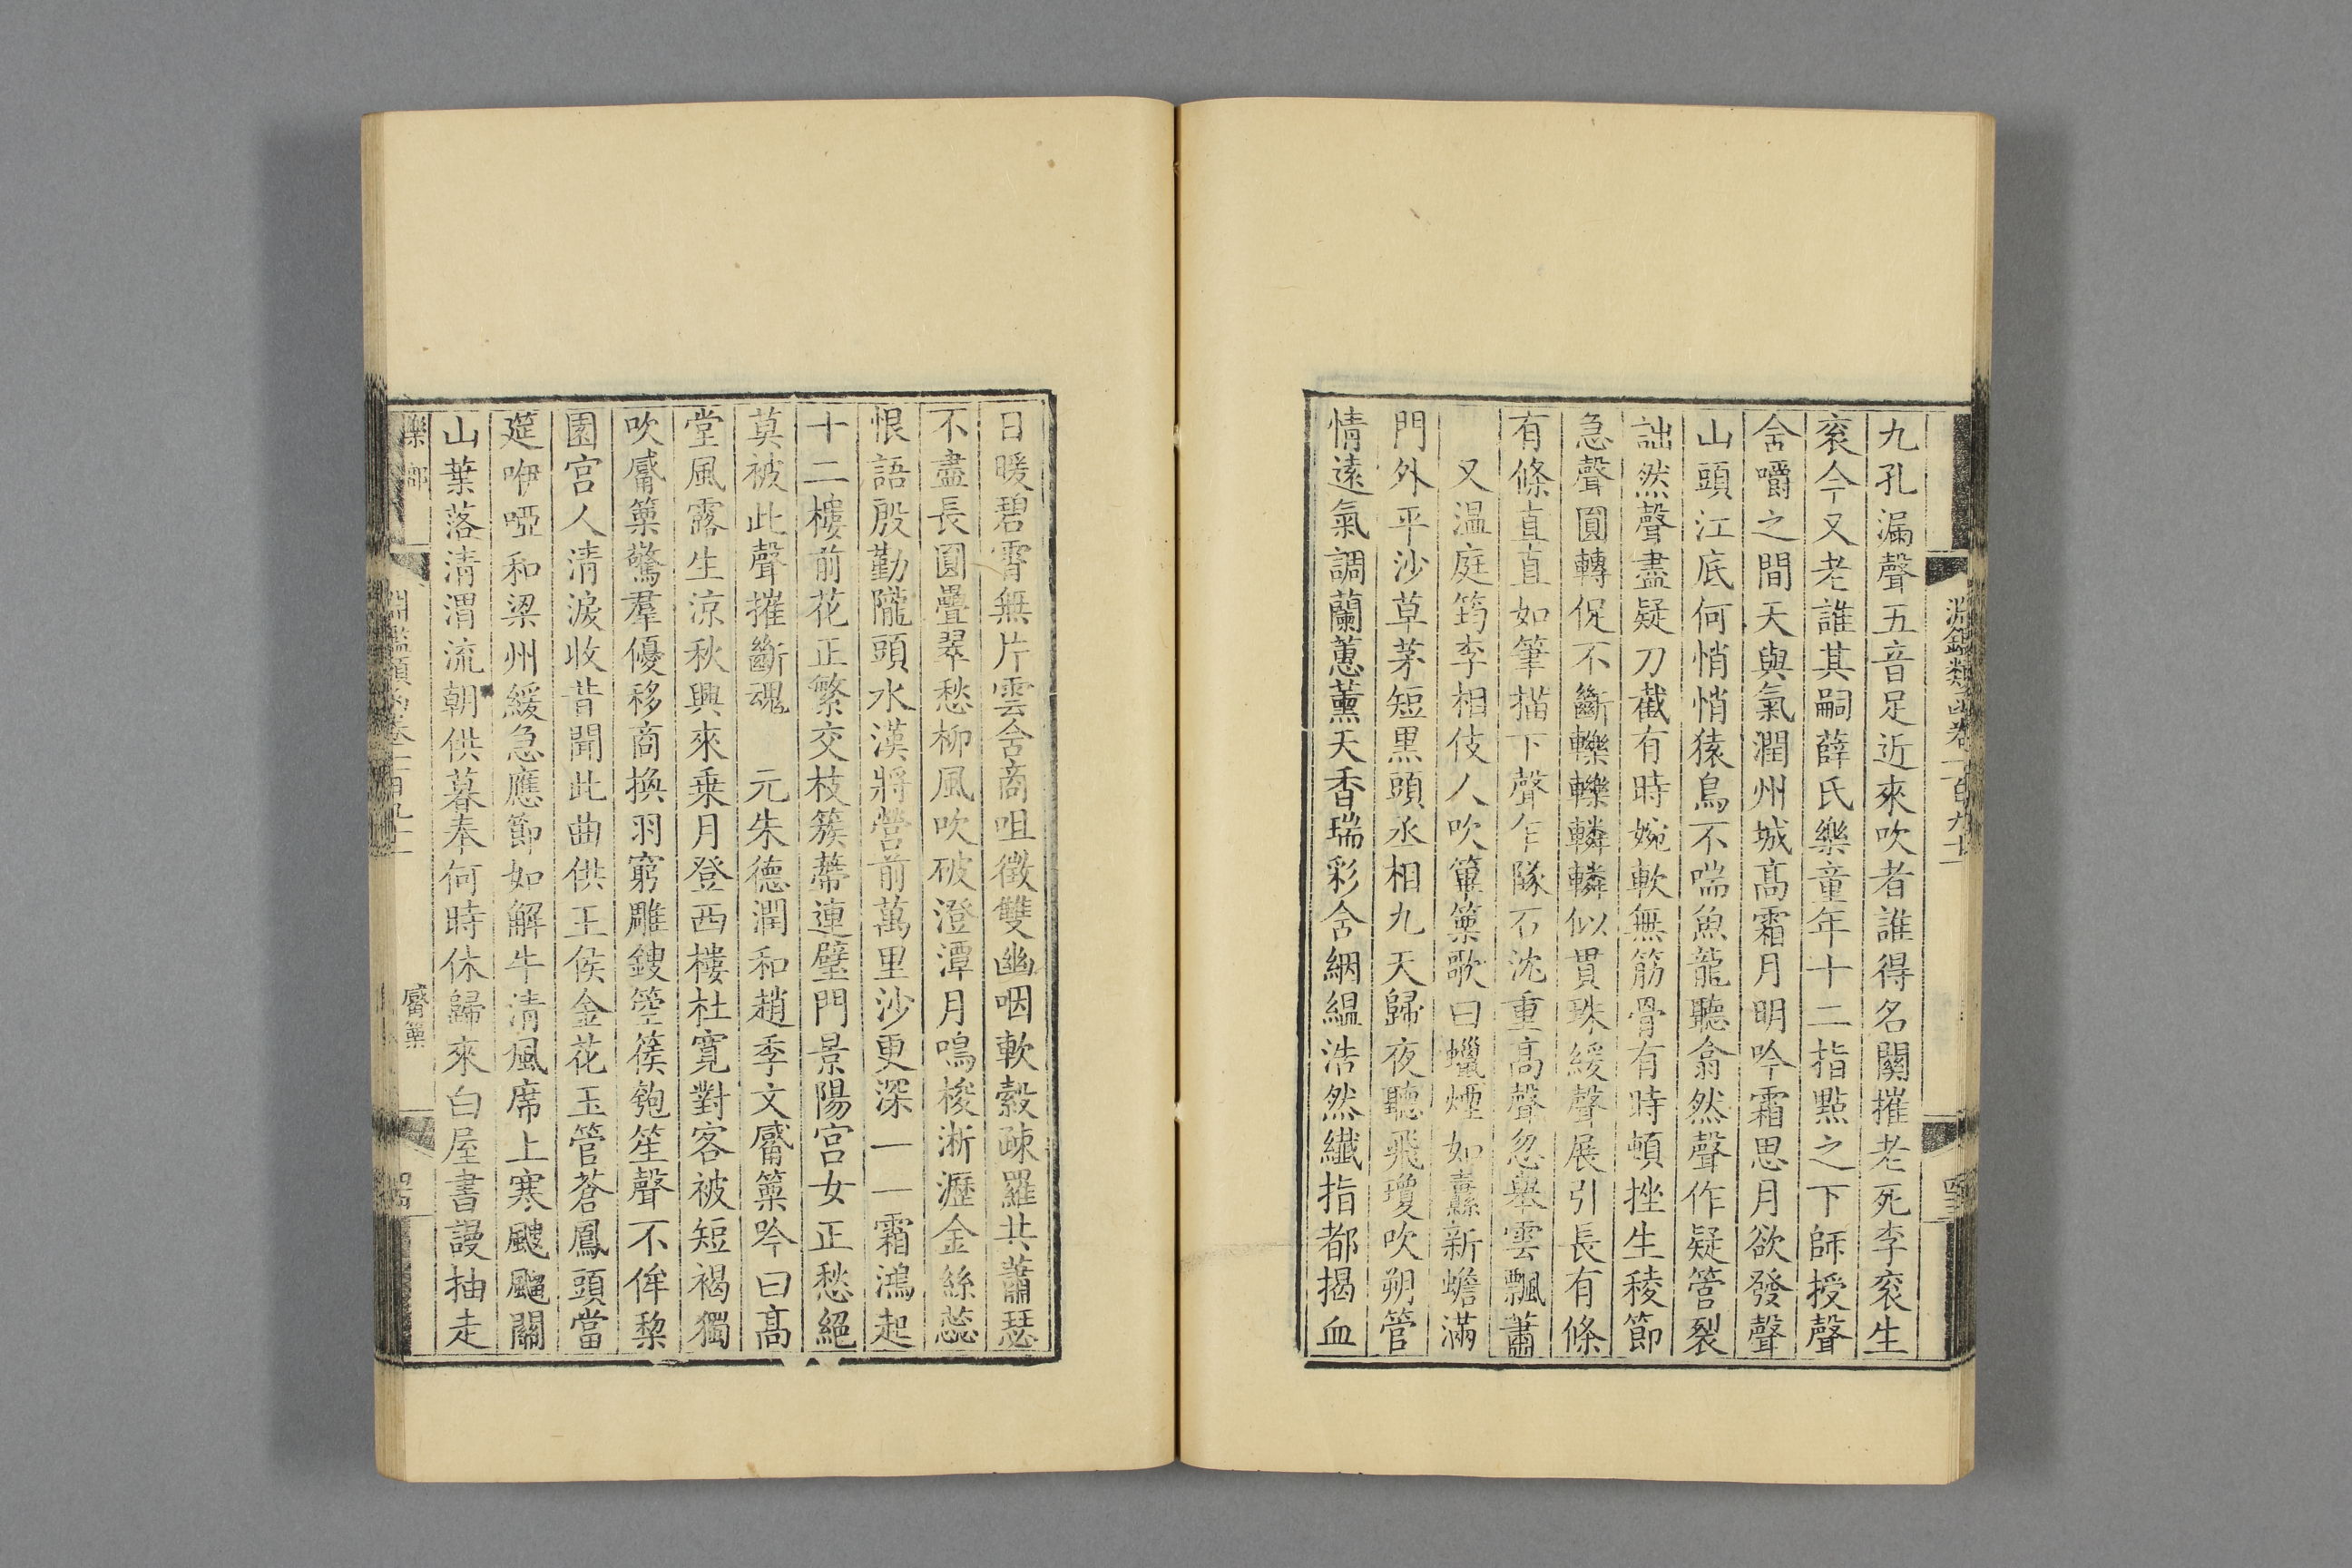 淵鑑類函卷一百九十
九孔漏聲五音足近來吹者誰得名關摧老死李衮生
衮今又老誰其嗣薛氏樂童年十二指點之下師授聲
含嚼之間天與氣潤州城髙霜月明吟霜思月欲發聲
山頭江底何悄悄猿鳥不喘魚龍聽翕然聲作疑管裂
詘然聲盡疑刀截有時婉軟無筋骨有時頓挫生稜節
急聲圓轉促不斷轢轢轔轔似貫珠緩聲展引長有條
有條直直如筆描下聲乍隊石沈重髙聲忽舉雲飄蕭
又温庭筠李相伎人吹篳篥歌曰蠟煙如纛新蟾滿
門外平沙草茅短黒頭丞相九天歸夜聽飛瓊吹朔管
情遠氣調蘭蕙薰天香瑞彩含絪緼浩然纎指都揭血
日暖碧霄無片雲含商咀徵雙幽咽軟縠疎羅共蕭瑟
不盡長圓疊翠愁柳風吹破澄潭月鳴梭淅瀝金絲蕊
恨語殷勤隴頭水漢將營前萬里沙更深一一霜鴻起
十二樓前花正繁交枝簇蔕連璧門景陽宫女正愁絕
莫被此聲摧斷魂　元朱德潤和趙季文觱篥吟曰髙
堂風露生涼秋興來乗月登西樓杜寛對客被短褐獨
吹觱篥驚羣優移商換羽窮雕鎪箜篌匏笙聲不侔棃
園宫人清淚收昔聞此曲供王侯金花玉管蒼鳳頭當
筵咿啞和梁州緩急應節如解牛清風席上寒颼飀關
山葉落清渭流朝供暮奉何時休歸來白屋書謾抽走
樂部
淵鑑類函卷一百九十
觱篥